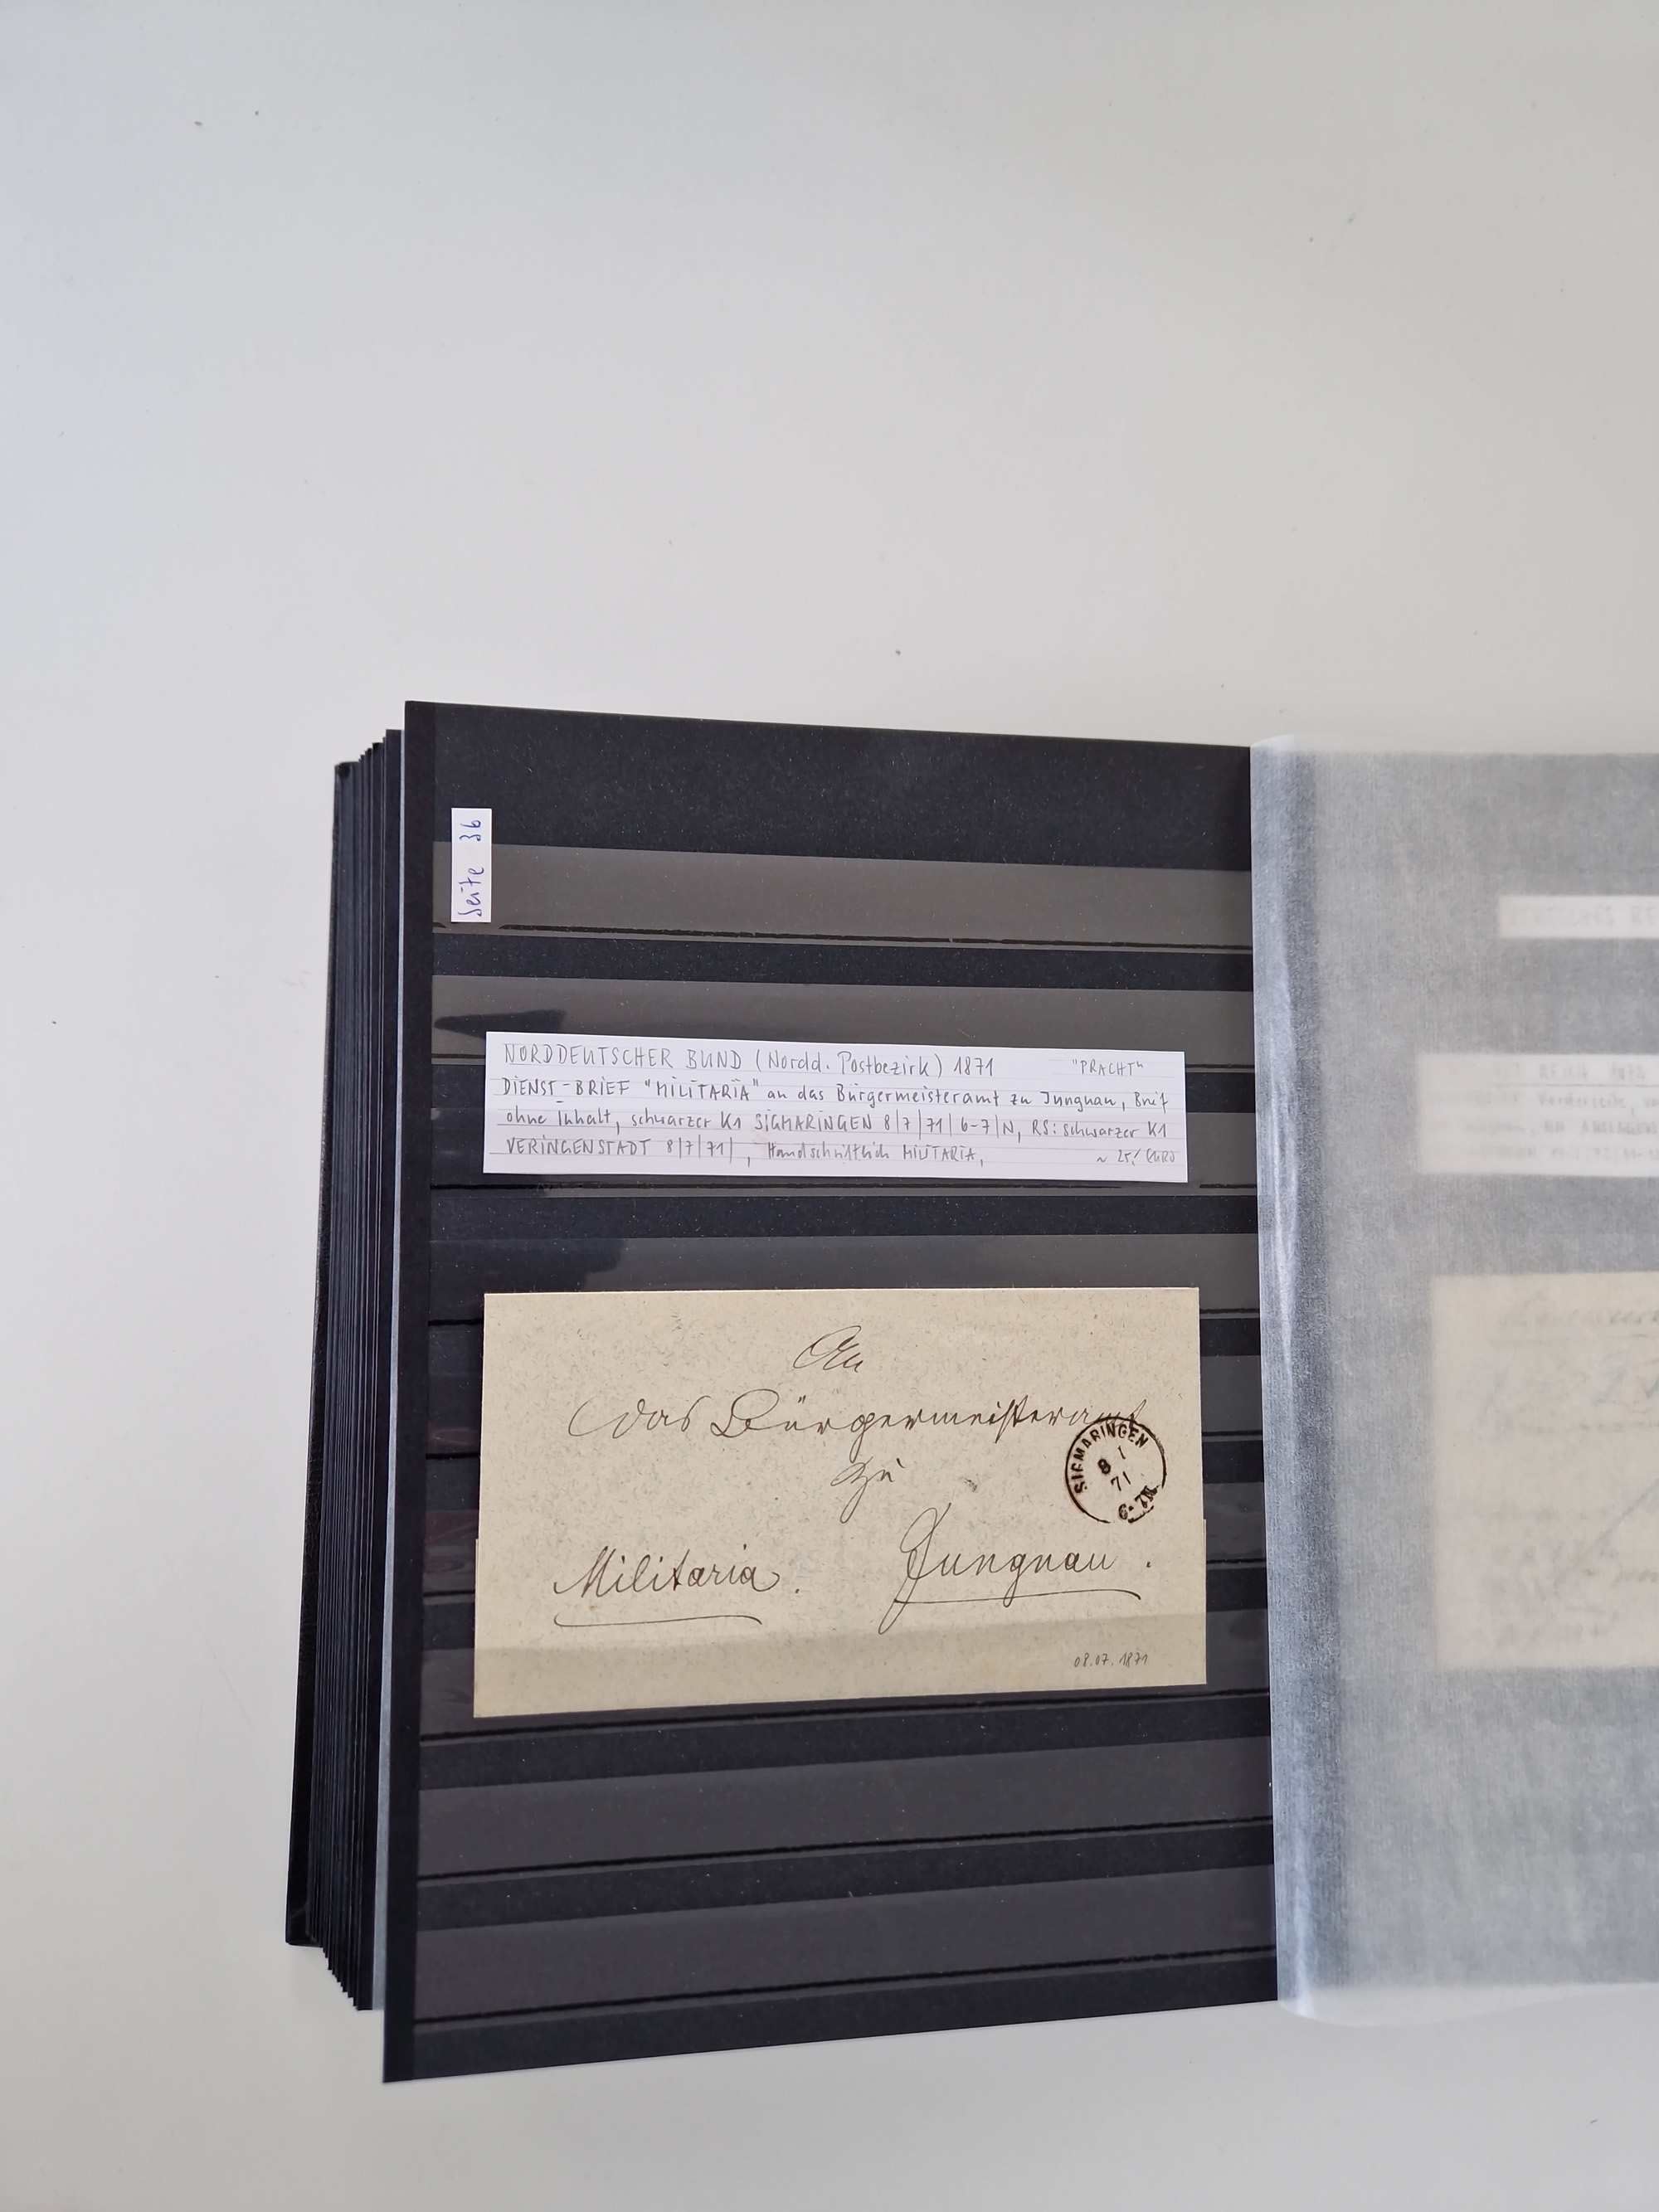 Seite 36
NORDDEUTSCHER BUND (Nordd. Postbezirk) 1871 "PRACHT"
DIENST-BRIEF "MILITARIA" an das Bürgermeisteramt zu Jungnau, Brief
ohne Inhalt, schwarzer K1 SIGMARINGEN 8/7/71/6-7/N, RS: schwarzer K1
VERINGENSTADT 8/7/71/, Handschriftlich MILITARIA, ~ 25,- EURO
An
das Bürgermeisteramt
zu
SIGMARINGEN
8 7
71
6-7N
Militaria. Jungnau.
08.07.1871
REICH
Vorderseite,